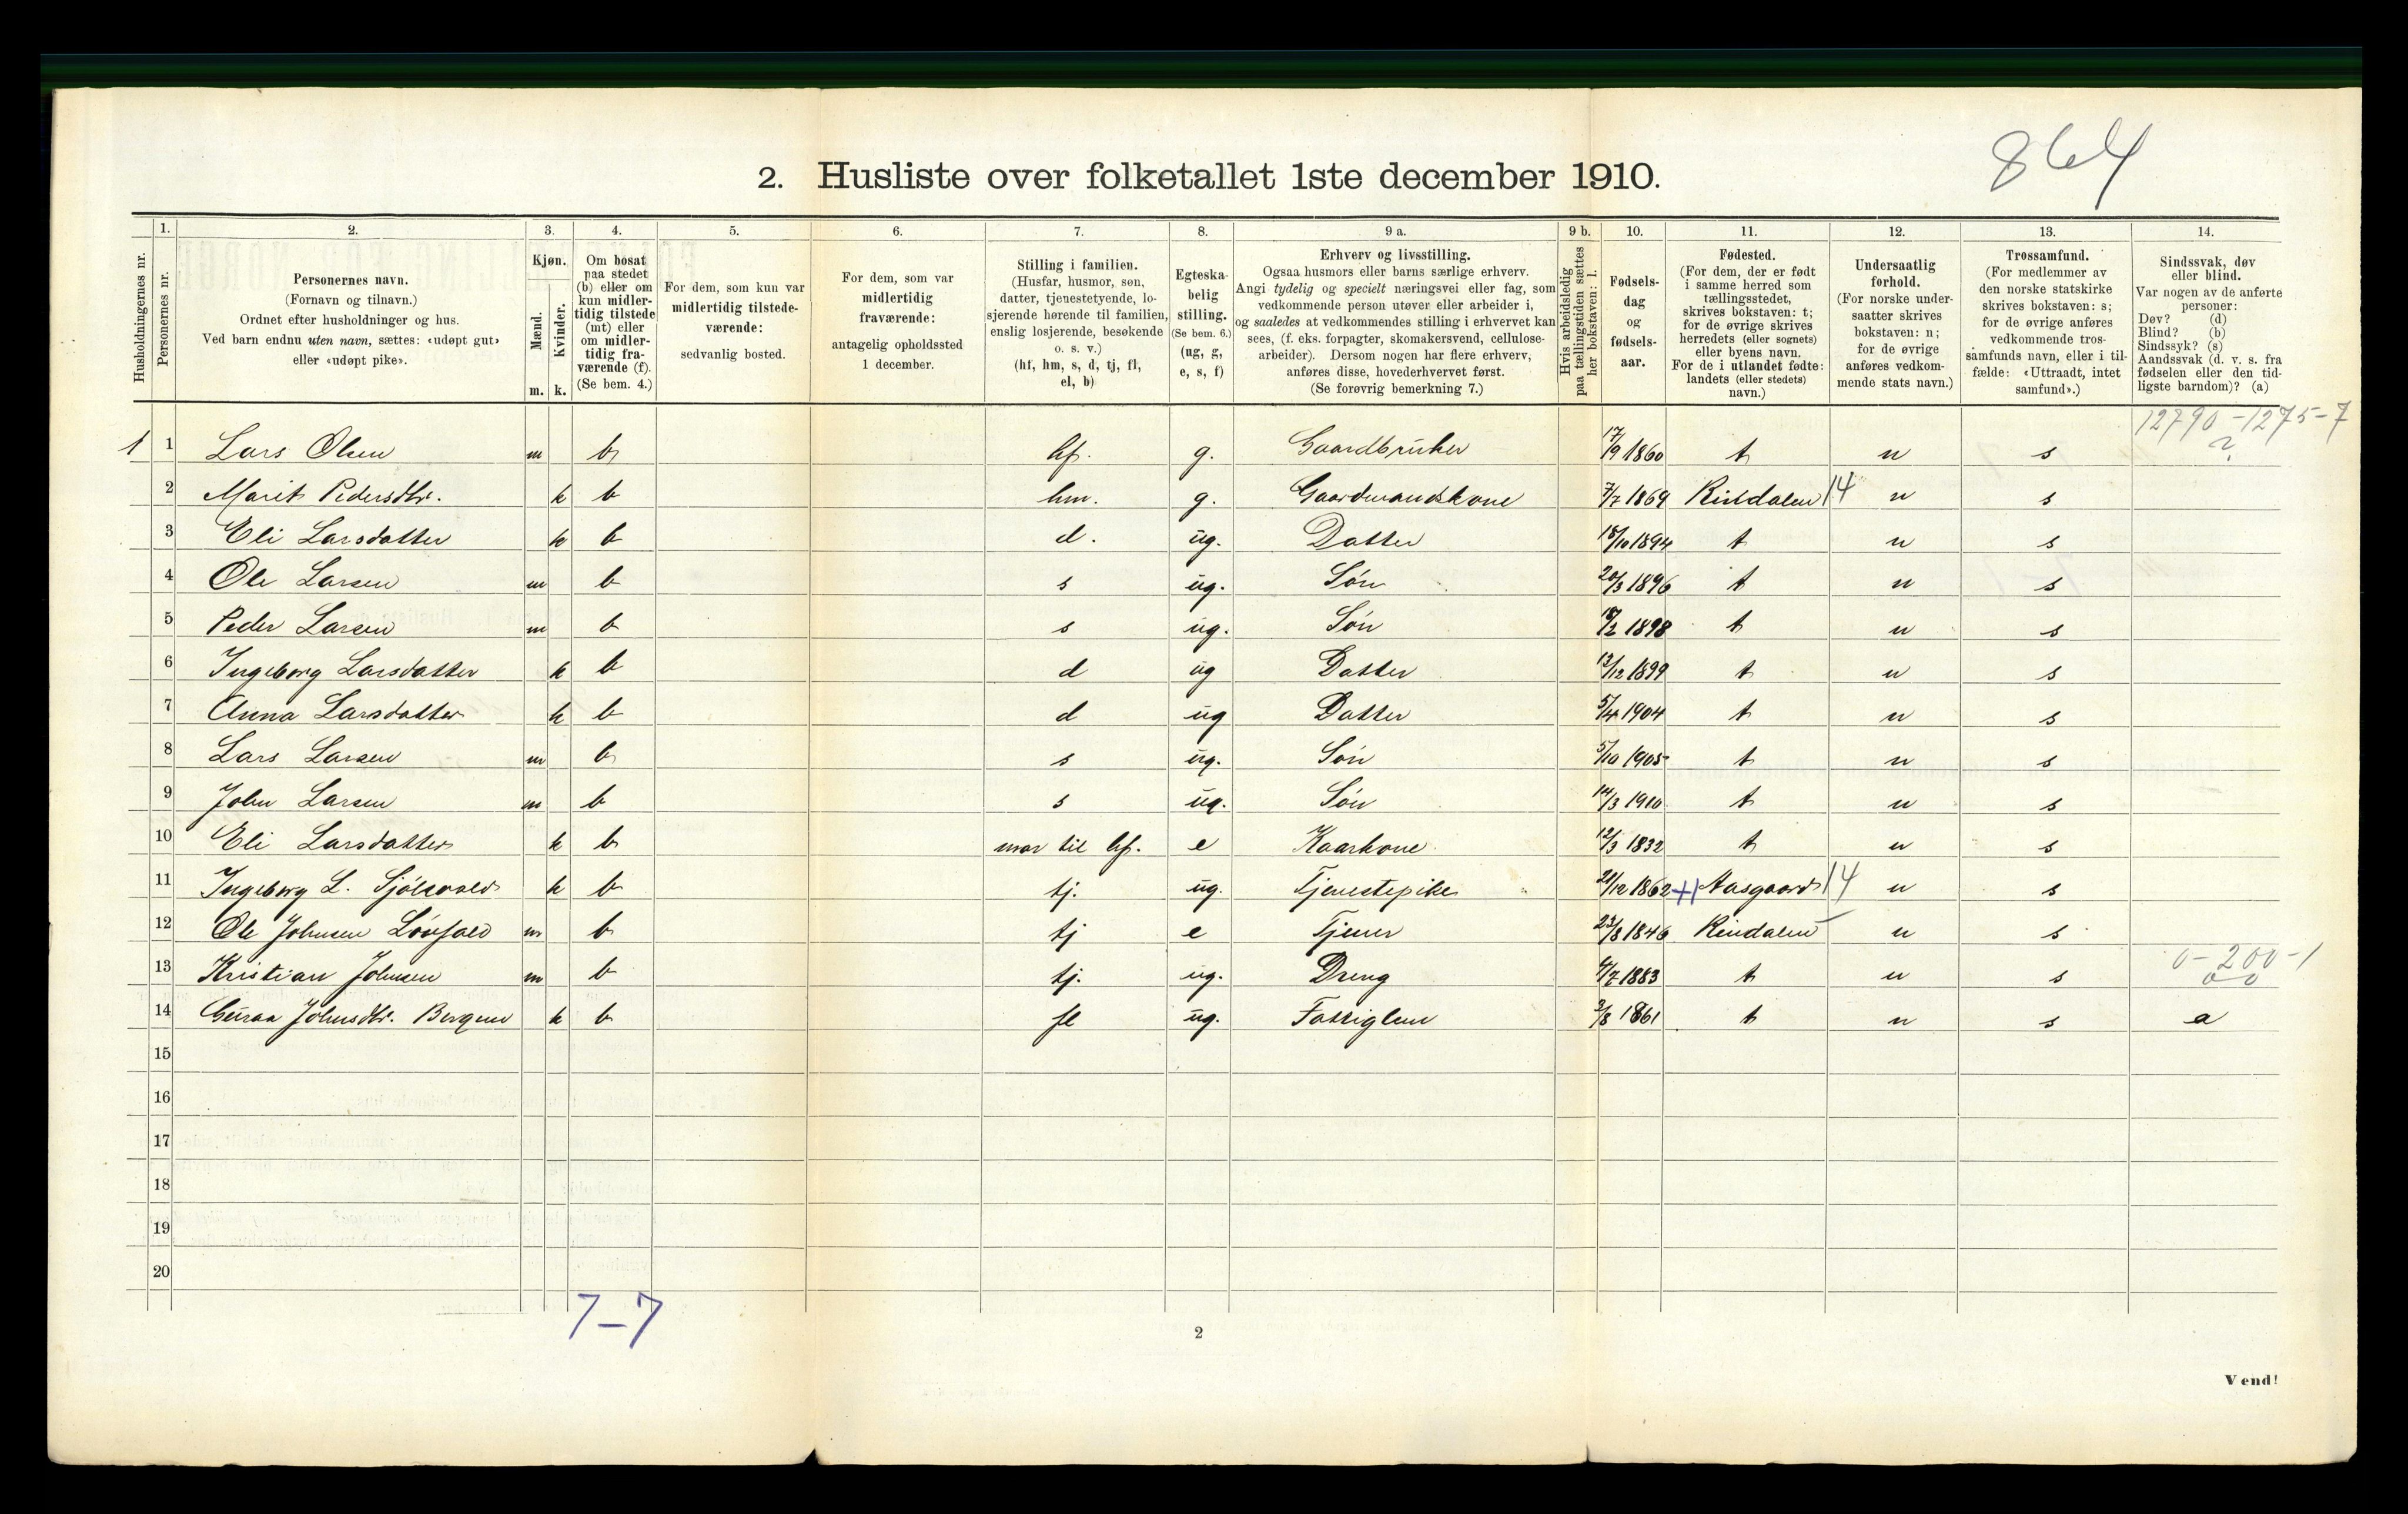 864
2. Husliste over folketallet 1ste december 1910.
Husholdningernes nr.
1.
Personernes nr.
2.
Personernes navn.
(Fornavn og tilnavn.)
Ordnet efter husholdninger og hus.
Ved barn endnu uten navn, sættes: «udøpt gut»
eller «udøpt pike».
3.
Kjøn.
Mænd.
Kvinder.
m. k.
4.
Om bosat
paa stedet
(b) eller om
kun midler-
tidig tilstede
(mt) eller
om midler-
tidig fra-
værende (f).
(Se bem. 4.)
5.
For dem, som kun var
midlertidig tilstede-
værende:
sedvanlig bosted.
6.
For dem, som var
midlertidig
fraværende:
antagelig opholdssted
1 december.
7.
Stilling i familien.
(Husfar, husmor, søn,
datter, tjenestetyende, lo-
sjerende hørende til familien,
enslig losjerende, besøkende
o. s. v.)
(hf, hm, s, d, tj, fl,
el, b)
8.
Egteska-
belig
stilling.
(Se bem. 6.)
(ug, g,
e, s, f)
9 a.
Erhverv og livsstilling.
Ogsaa husmors eller barns særlige erhverv.
Angi tydelig og specielt næringsvei eller fag, som
vedkommende person utøver eller arbeider i,
og saaledes at vedkommendes stilling i erhvervet kan
sees, (f. eks. forpagter, skomakersvend, cellulose-
arbeider). Dersom nogen har flere erhverv,
anføres disse, hovederhvervet først.
(Se forøvrig bemerkning 7.)
9 b.
Hvis arbeidsledig
paa tællingstiden sættes
her bokstaven: l.
10.
Fødsels-
dag
og
fødsels-
aar.
11.
Fødested.
(For dem, der er født
i samme herred som
tællingsstedet,
skrives bokstaven: t;
for de øvrige skrives
herredets (eller sognets)
eller byens navn.
For de i utlandet fødte:
landets (eller stedets)
navn.)
12.
Undersaatlig
forhold.
(For norske under-
saatter skrives
bokstaven: n;
for de øvrige
anføres vedkom-
mende stats navn.)
13.
Trossamfund.
(For medlemmer av
den norske statskirke
skrives bokstaven: s;
for de øvrige anføres
vedkommende tros-
samfunds navn, eller i til-
fælde: «Uttraadt, intet
samfund».)
14.
Sindssvak, døv
eller blind.
Var nogen av de anførte
personer:
Døv? (d)
Blind? (b)
Sindssyk? (s)
Aandssvak (d. v. s. fra
fødselen eller den tid-
ligste barndom)? (a)
12790-1275-7
2
1 1 Lars Olsen m b hf. g. Gaardbruker 17/9 1860 t n s
2 Marit Pedersdtr. k b hm. g. Gaardmandskone 7/7 1869 Rindalen 14 n s
3 Eli Larsdatter k b d. ug. Datter 18/10 1894 t n s
4 Ole Larsen m b s ug. Søn 20/3 1896 t n s
5 Peder Larsen m b s ug. Søn 18/2 1898 t n s
6 Ingeborg Larsdatter k b d ug Datter 13/12 1899 t n s
7 Anna Larsdatter k b d ug Datter 5/4 1904 t n s
8 Lars Larsen m b s ug. Søn 5/10 1905 t n s
9 John Larsen m b s ug. Søn 14/3 1910 t n s
10 Eli Larsdatter k b mor til hf. e Kaarkone 12/3 1832 t n s
11 Ingeborg L. k b tj. ug. Tjenestepike 21/12 1862 Aasgaard 14 n s
12 Ole Johnsen Løvfald m b tj e Tjener 23/8 1846 Rindalen n s
0-200-1
0-0
13 Kristian Johnsen m b tj. ug. Dreng 4/7 1883 t n s
14 Johnsdtr. k b fl ug. Fattiglem 3/8 1861 t n s a
15
16
17
18
19
20
7-7
2
Vend!